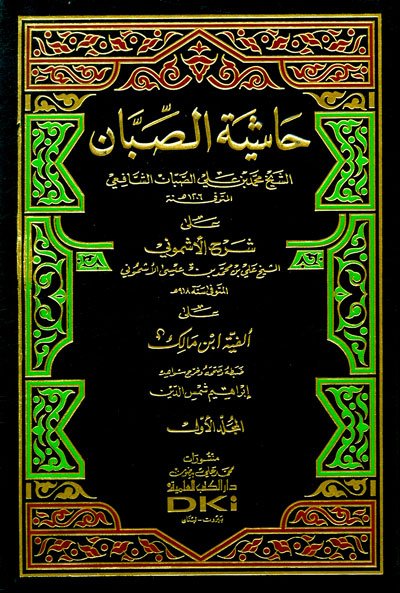 حَاشِيَة الصَّبَّان
الشيخ محمد بن علي الصبان الشافعي
المتوفى ١٢٠٦ هـ سنة
على
شرح الأشموني
الشيخ علي بن محمد بن عيسى الأشموني
المتوفى سنة ٩١٨هـ
على
ألفية ابن مالك
ضبطه وصححه وخرج شواهده
إبراهيم شمس الدين
المجلد الأول
منشورات
محمد علي بيضون
دار الكتب العلمية
DKi
بيروت - لبنان